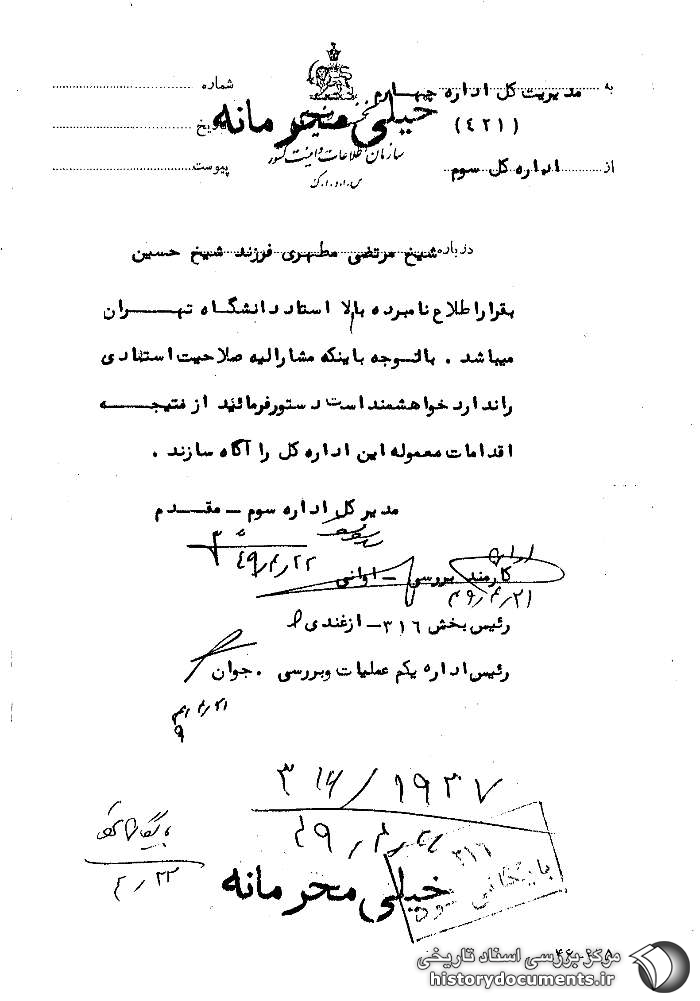 به مدیریت کل اداره چهارم شماره
خیلی محرمانه
(۴۲۱) تاریخ
سازمان اطلاعات و امنیت کشور
از اداره کل سوم پیوست
س.ا.و.ا.ک
درباره شیخ مرتضی مطهری فرزند شیخ حسین
بقرار اطلاع نامبرده بالا استاد دانشگاه تهران
میباشد . باتوجه باینکه مشارالیه صلاحیت استادی
را ندارد خواهشمند است دستور فرمائید از نتیجه
اقدامات معموله این اداره کل را آگاه سازند .
مدیر کل اداره سوم - مقدم
۴۹٫۴٫۲۲
کارمند بررسی - اوانی
۴۹٫۴٫۲۱
رئیس بخش ۳۱۶ - ازغندی
رئیس اداره یکم عملیات و بررسی . جوان
۳۱۶/۱۹۳۷
بایگانی شود
۳۱۶
۴٫۲۳
بایگانی شود
خیلی محرمانه
مرکز بررسی اسناد تاریخی
historydocuments.ir